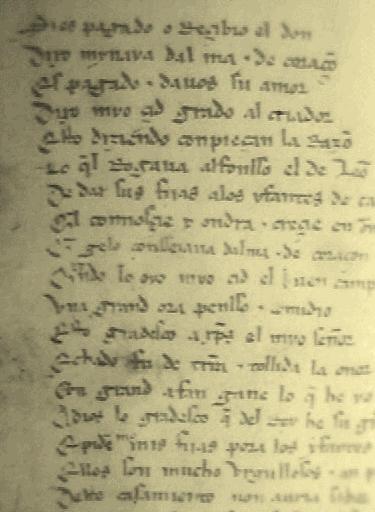 Dios pagado o Reçibio el don
Dixo mynaya dal ma ⋅ de coraçō
Es pagado ⋅ dauos su amor
Dixo myo çid grado al criador
Esto diziendo conpieçan la Razō
Lo q̄l Rogaua alfonsso el de Leō
De dar sus fijas alos yfantes de ca
Quel connosçie y ondra ⋅ creçie en
gelo conseiaua dalma ⋅ de coraçon
lo oyo myo çid el buen camp
Vna grand ora pensso ⋅ comidio
Esto gradesco a xp̄s el myo señor
Echado fu de trr̄a ⋅ tollida la onor
Con grand afan gane lo q̄ he yo
Adios lo gradesco q̄ del Rey he su g
E piden mis fijas pora los yfantes
Ellos son mucho vrgullosos ⋅ an p
Deste casamiento non auria sabor